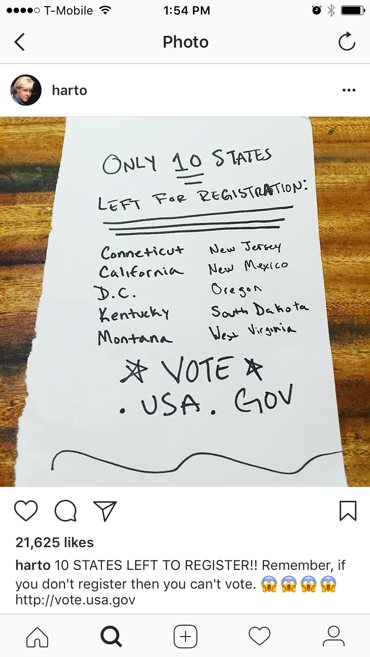 T-Mobile 1:54 PM
Photo
harto
ONLY 10 STATES
LEFT FOR REGISTRATION:
Conneticut New Jersey
California New Mexico
D.C. Oregon
Kentucky South Dakota
Montana West Virginia
VOTE
. USA. GOV
21,625 likes
harto 10 STATES LEFT TO REGISTER!! Remember, if
you don't register then you can't vote. 😱😱😱😱
http://vote.usa.gov